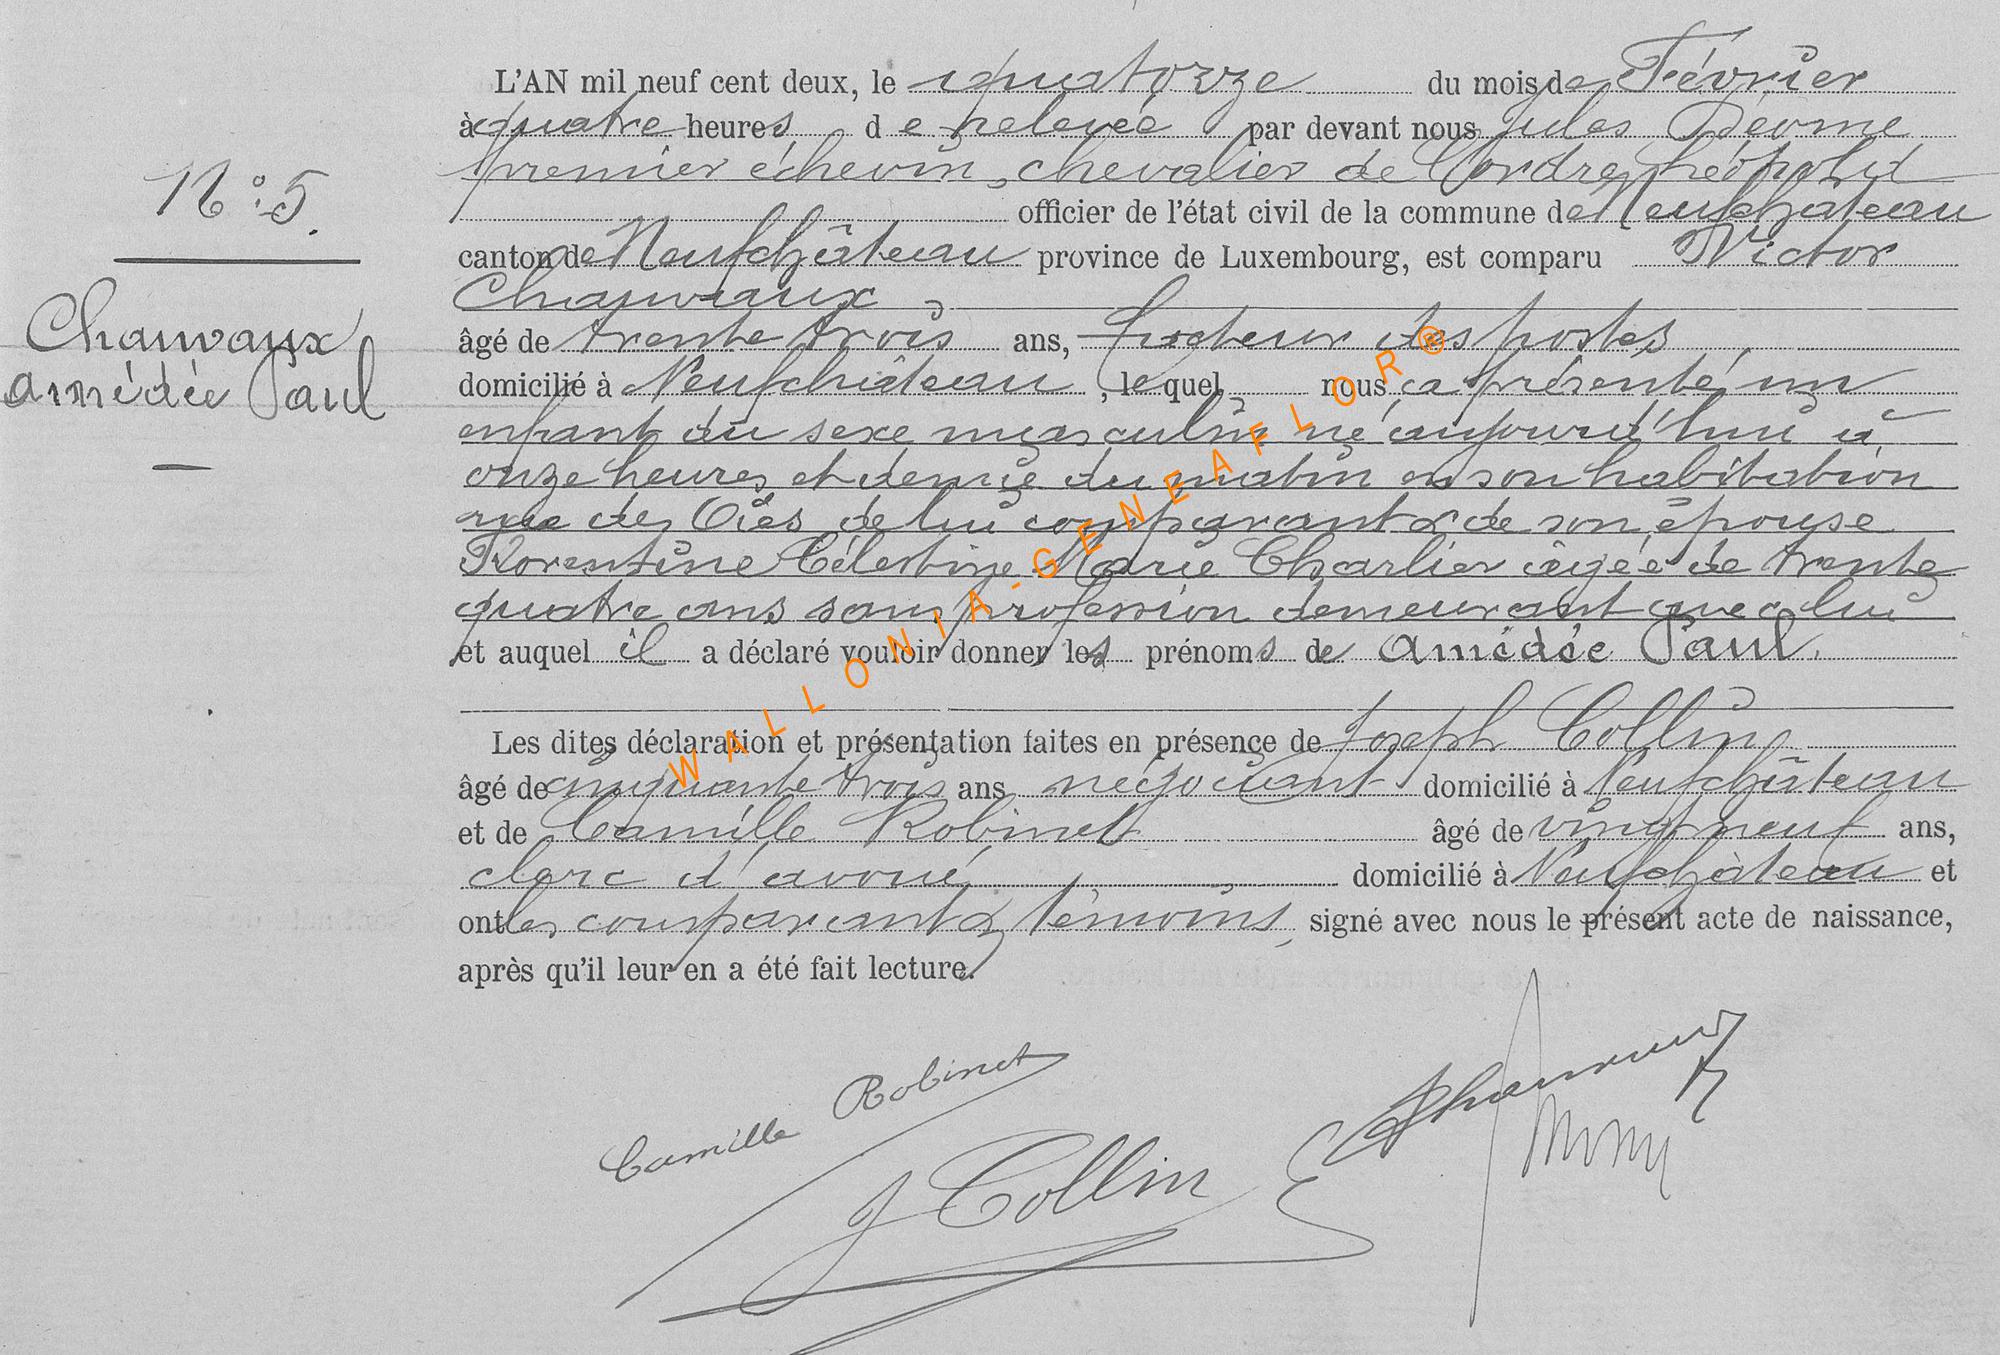 N°: 5.
Chauvaux
Amédée Paul
L'AN mil neuf cent deux, le quatorze du mois de Février
à quatre heures de relevée par devant nous Jules
premier échevin, chevalier de l'ordre Léopold
officier de l'état civil de la commune de Neufchâteau
canton de Neufchâteau province de Luxembourg, est comparu Victor
Chauvaux
âgé de trente trois ans, facteur des postes
domicilié à Neufchâteau, lequel nous a présenté un
enfant du sexe masculin né aujourd'hui à
onze heures et demie du matin en son habitation
rue des Oies de lui comparant & de son épouse
Florentine Célestine Marie Charlier âgée de trente
quatre ans sans profession demeurant avec lui
et auquel il a déclaré vouloir donner les prénoms de Amédée Paul.
Les dites déclaration et présentation faites en présence de Joseph Collin
âgé de cinquante trois ans négociant domicilié à Neufchâteau
et de Camille Robinet âgé de vingt neuf ans,
clerc d'avoué domicilié à Neufchâteau et
ont les comparant & témoins, signé avec nous le présent acte de naissance,
après qu'il leur en a été fait lecture.
Camille Robinet
J Collin
Chauvaux
WALLONIA-GENEAFLOR®